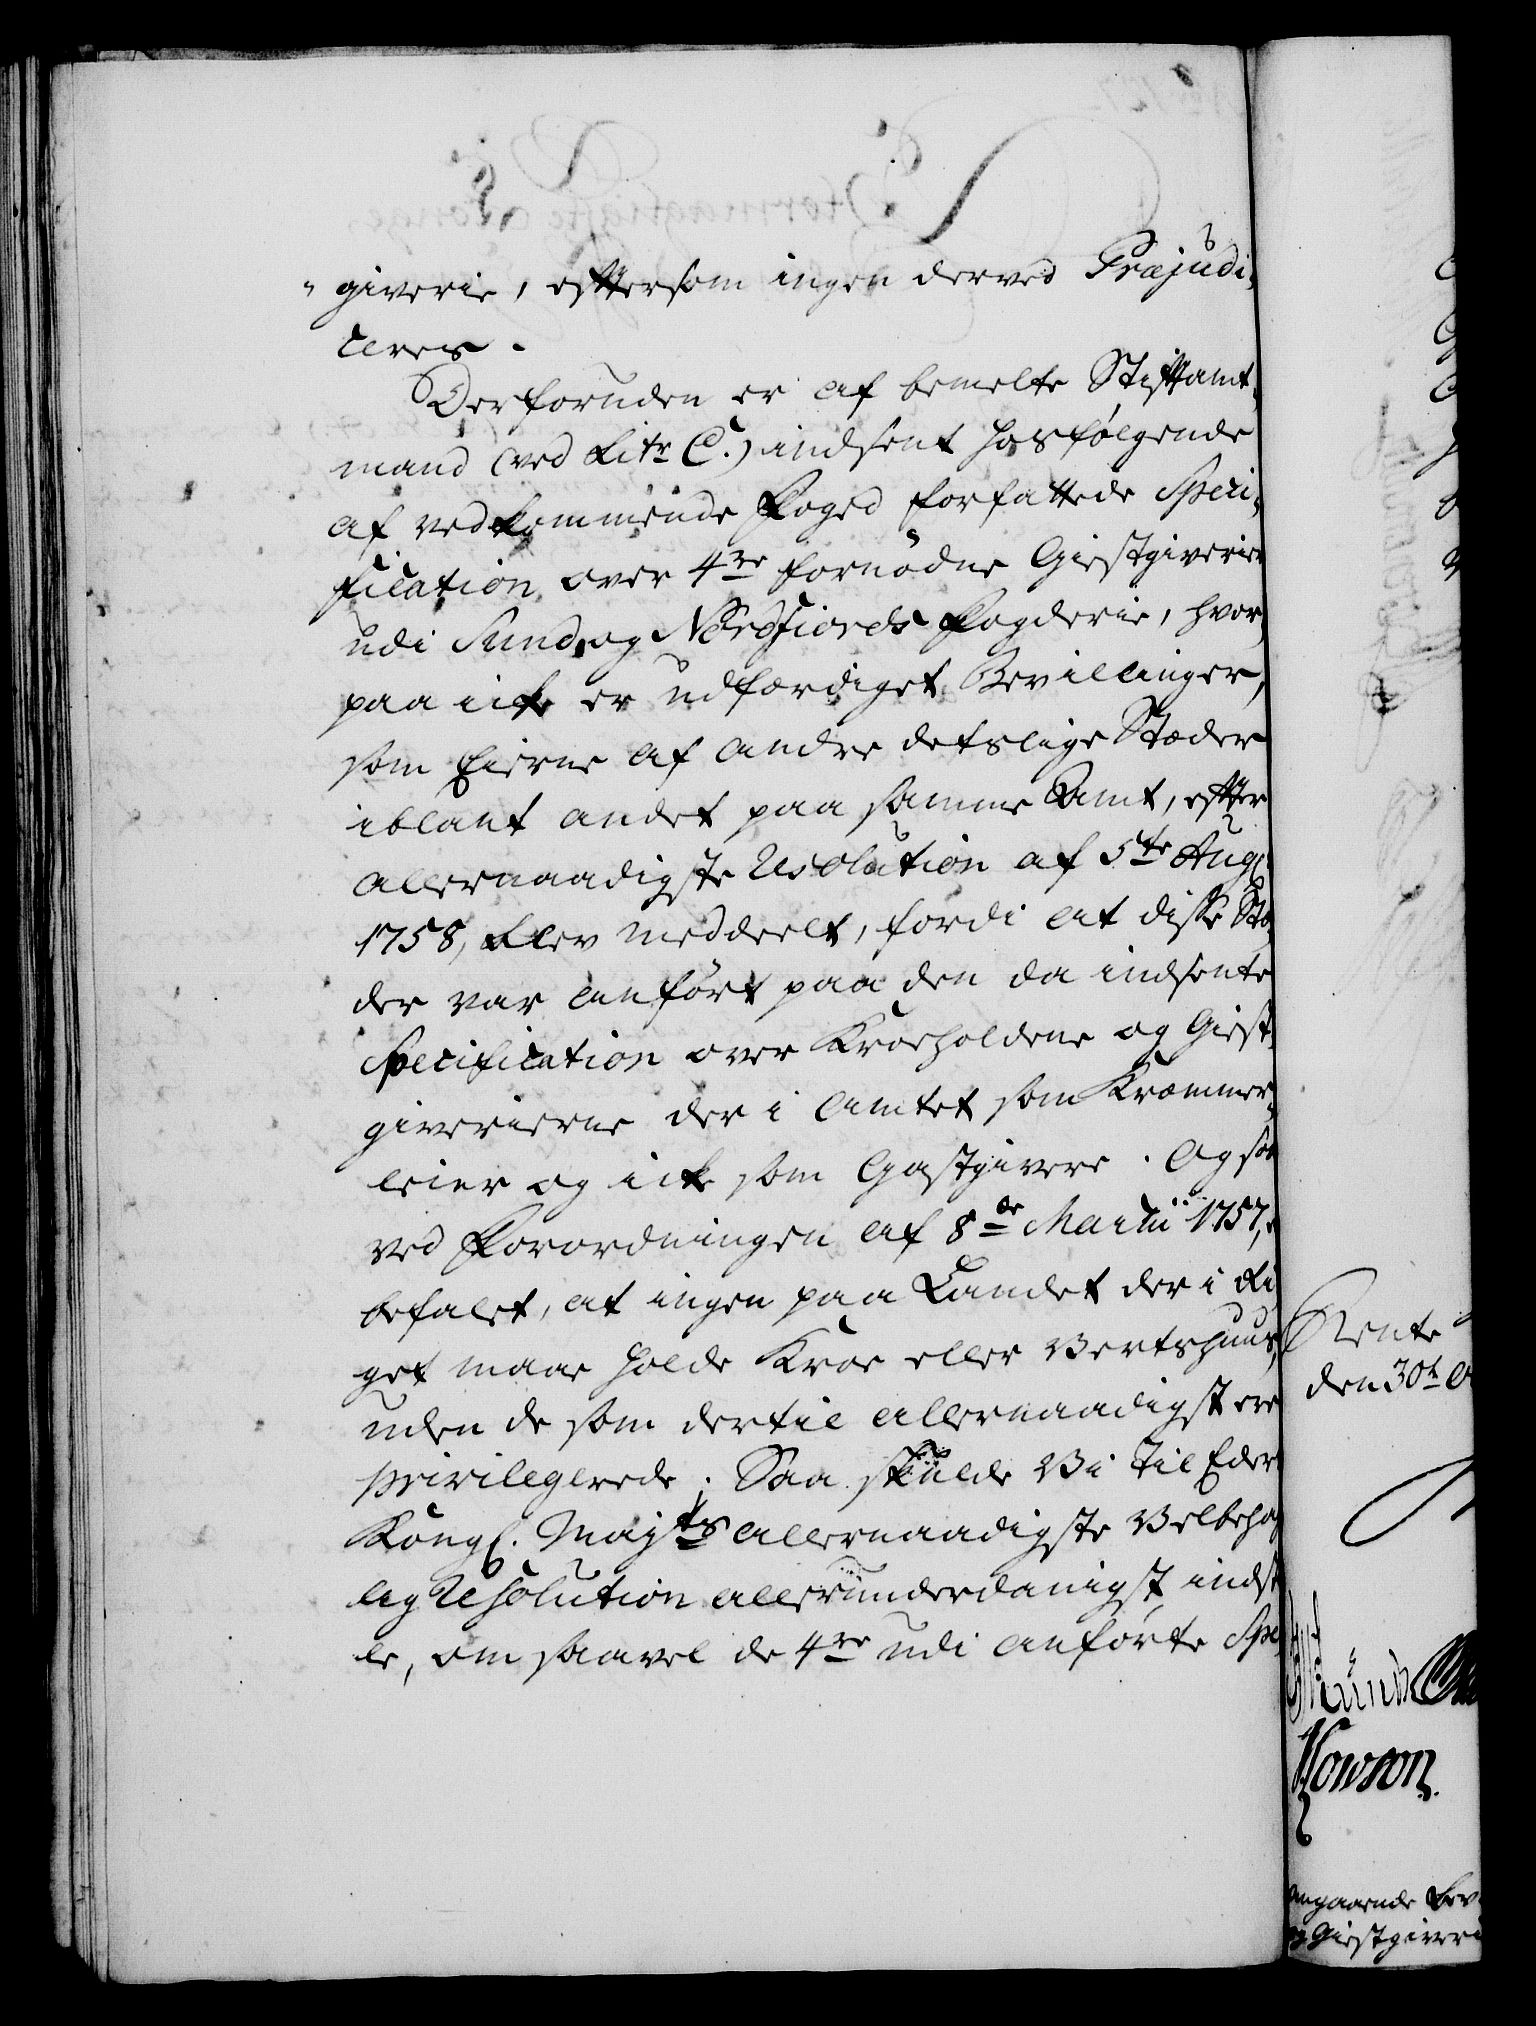 " giverie, eftersom ingen derved Præjudi-
ceres.
Derforuden er af bemelte Stiftamt-
mand (ved Litr C.) indsent hosfølgende
af vedkommende Foged forfattede Speci-
fication over 4re fornødne Giestgiverier
udi Sund, og Nordfiords Fogderie, hvor-
paa icke er udfærdiget Bevillinger,
som Eierne af andre deslige Stæder
iblant andet paa samme Amt, efter
allernaadigste Resolution af 5te Aug.
1758, blev meddeelt, fordi at disse Stæ-
der var anført paa den da indsente
Specification over Kroeholdene og Giest-
giverierne der i Amtet som Kræmmer-
leier og icke som Gastgivere. Og som
ved Forordningen af 8de Martii 1757,
befalet, at ingen paa Landet der i Ri-
get maae holde Kroe eller Vertshuus,
uden de som dertil allernaadigst ere
privilegerede; Saa skulde Vi til Eders
Kongl. Mayts allernaadigste Velbehag
og Resolution allerunderdanigst indstil-
le, om saavel de 4re udi anførte Spe-
Rente
den 30t
Howson
angaaende Bev
og Giestgiveri